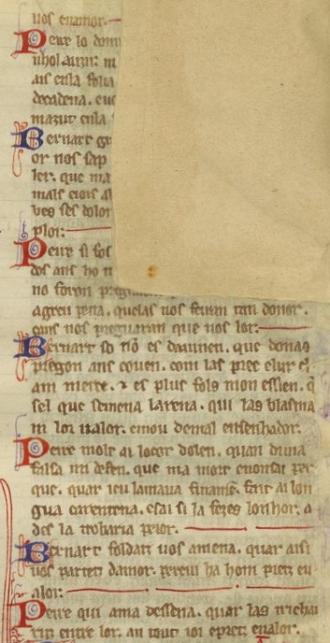 uos enamor.
Peire lo dous
nhol auzir. m
ais eisla folia
decadena. euc
mazut eula
Bernart gr
or nos sap
ler. que ma
mais eiois al
ves ses dolor
plor:
Peire si fos
dos ans ho n
no foron
agren pena. quelas uos feiran tan donor.
cuns nos preguaran que nos lor.
Bernart so nõ es dauinen. que donas
preguon ans couen. com las prec elur cl
am merce. ⁊ es plus fols mon essien. q̃
sel que semena larena. qui las blasma
ni lor ualor. emou demal ensenhador.
Peire molt ai locor dolen. quan duna
falsa mi deten. que ma mort enonsai per
que. quar ieu lamaua finamẽ. fait ai lon
gua carentena. esai si la fezes lonhor. a
des la trobaria peior.
Bernart foldatz uos amena. quar aisi
uos partetz damor. pereui ha hom pretz eu
alor:
Peire qui ama dessena. quar las trichai
ritz entre lor. an tout ioi epretz eualor.